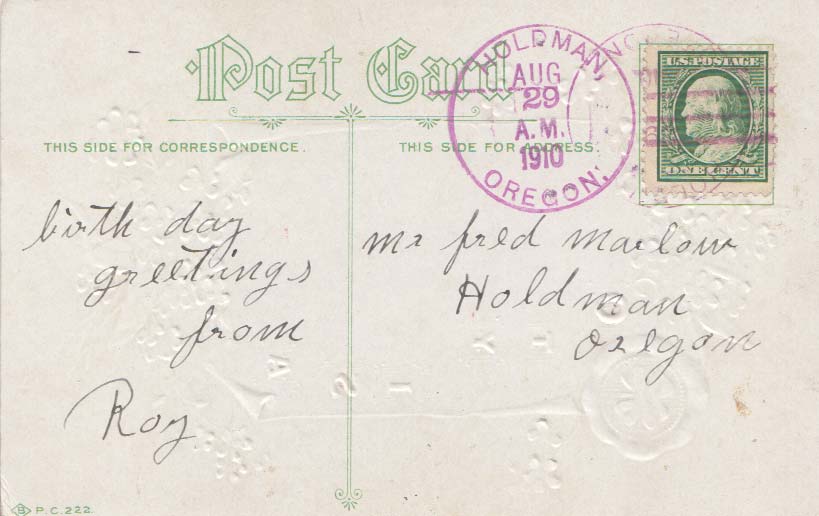 Post Card
THIS SIDE FOR CORRESPONDENCE.
THIS SIDE FOR ADDRESS.
HOLDMAN,
AUG
29
A.M.
1910
OREGON.
U.S. POSTAGE
ONE CENT
birth day
greetings
from
Roy
mr fred marlow
Holdman
oregon
P.C. 222.